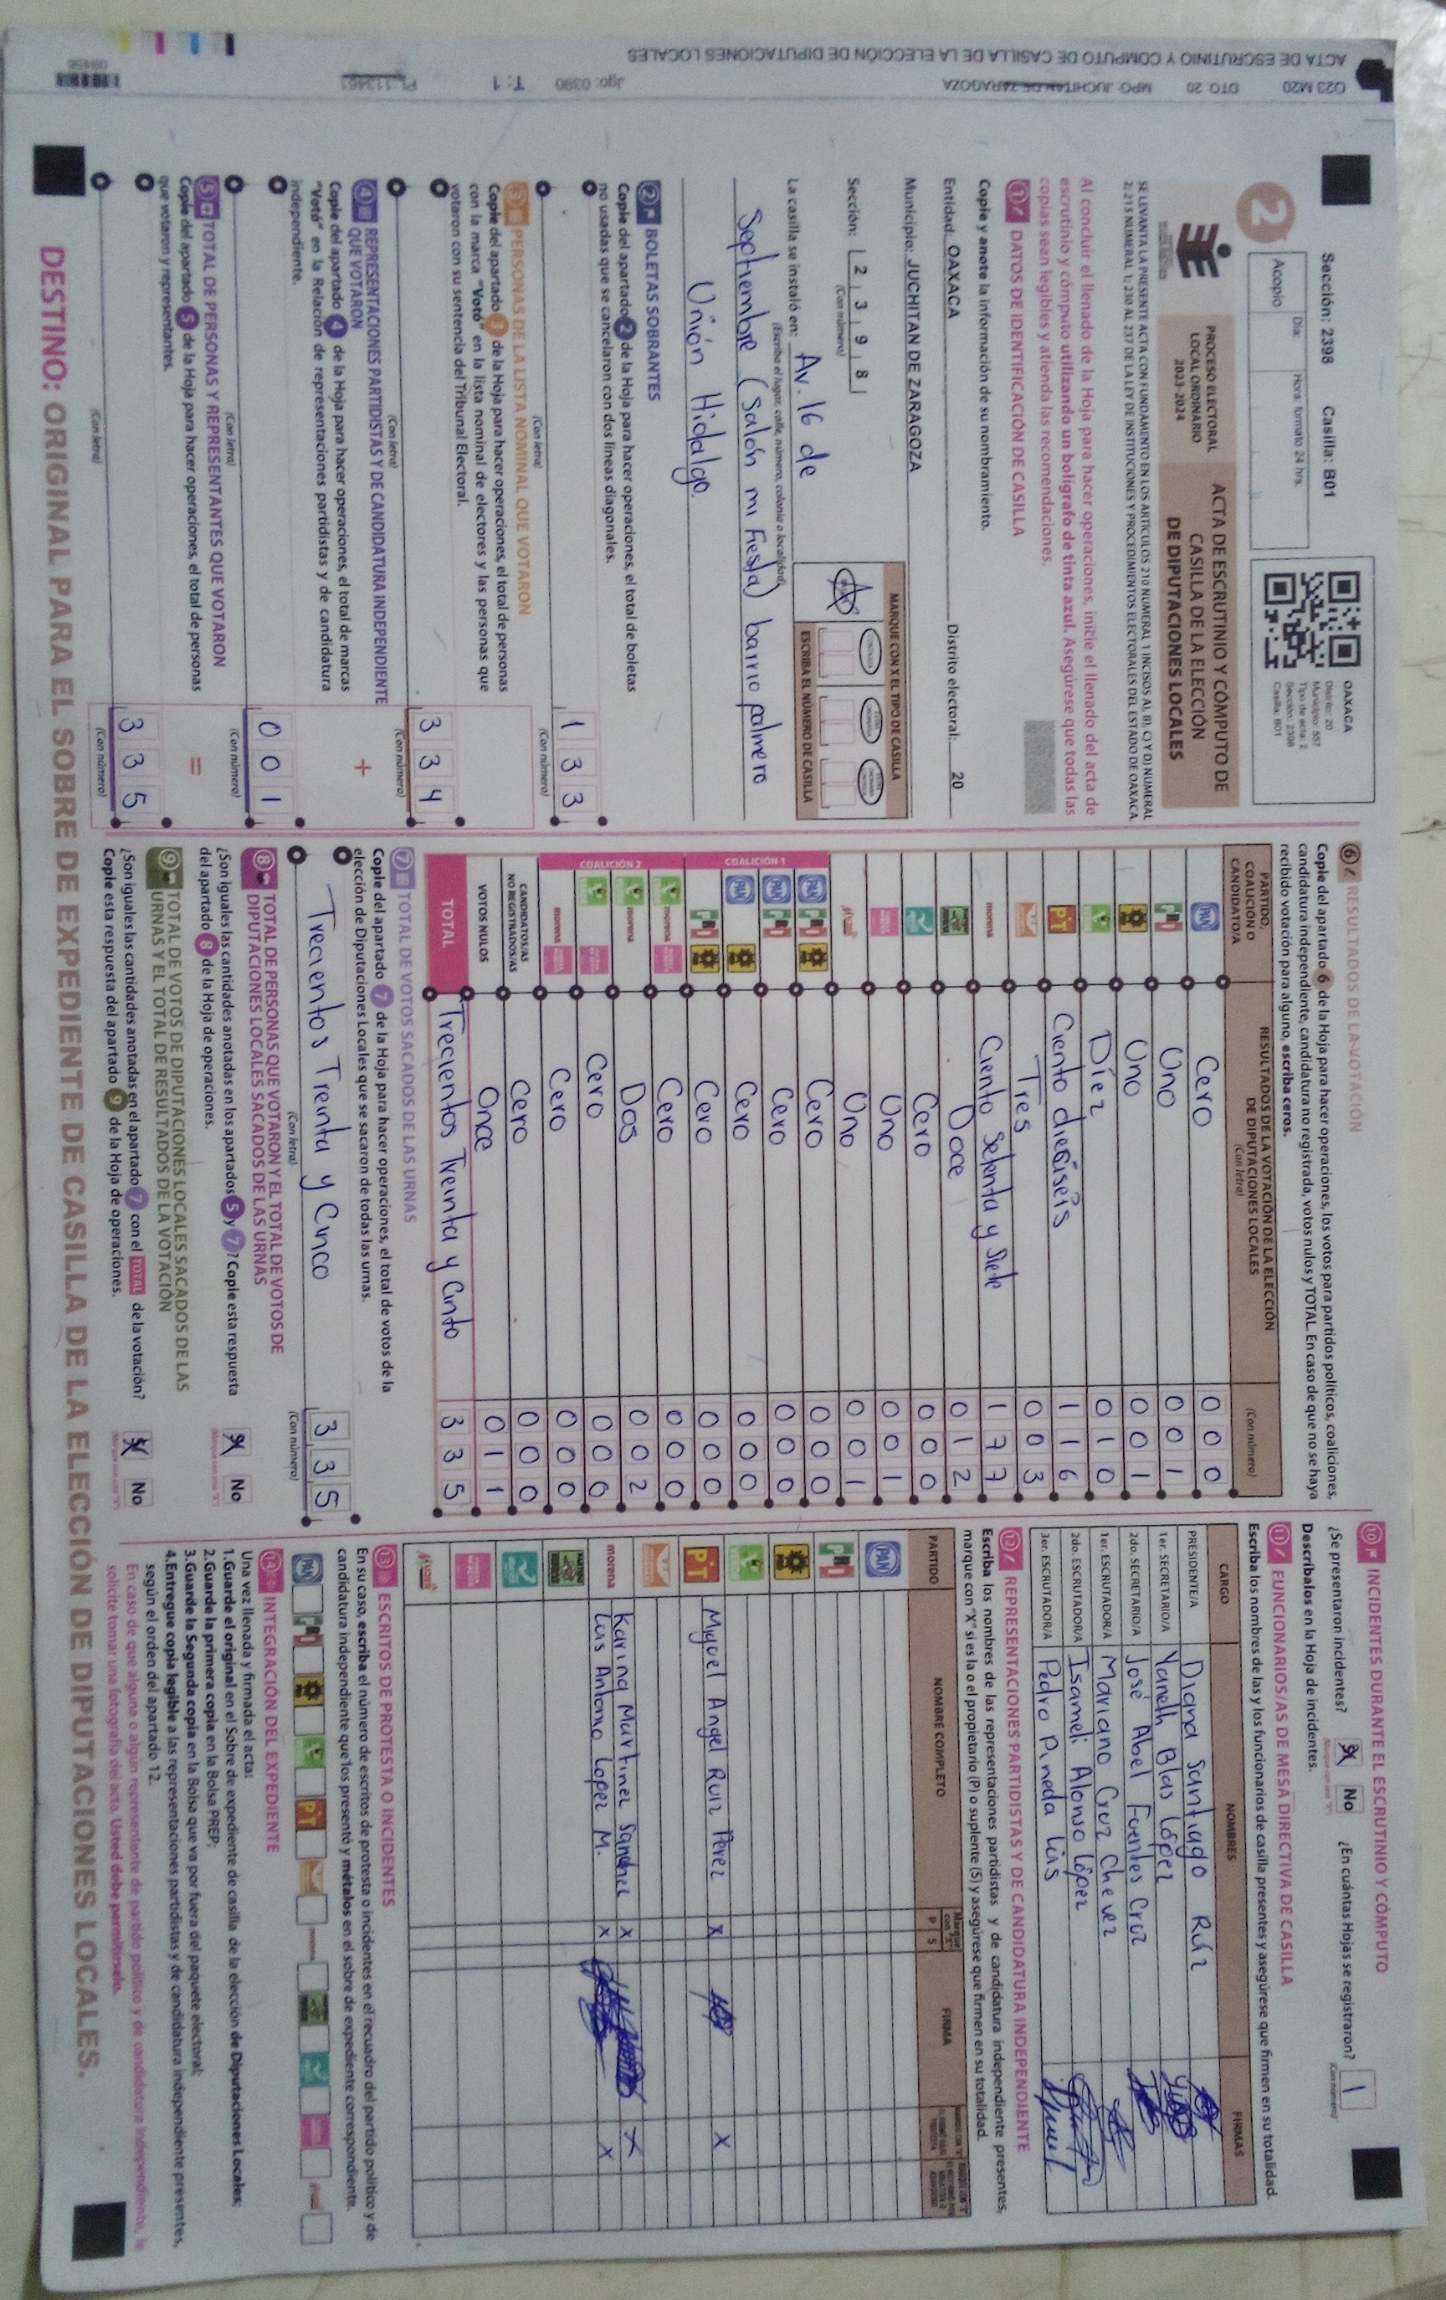 Sección: 2398 Casilla: B01
Día: Hora: formato 24 hrs.
Acopio
2
OAXACA
Distrito: 20
Municipio: 557
Tipo de acta: 2
Sección: 2398
Casilla: B01
PROCESO ELECTORAL
LOCAL ORDINARIO
2023-2024
ACTA DE ESCRUTINIO Y CÓMPUTO DE
CASILLA DE LA ELECCIÓN
DE DIPUTACIONES LOCALES
SE LEVANTA LA PRESENTE ACTA CON FUNDAMENTO EN LOS ARTÍCULOS 210 NUMERAL 1 INCISOS A), B), C) Y D) NUMERAL
2; 215 NUMERAL 1; 230 AL 237 DE LA LEY DE INSTITUCIONES Y PROCEDIMIENTOS ELECTORALES DEL ESTADO DE OAXACA.
Al concluir el llenado de la Hoja para hacer operaciones, inicie el llenado del acta de
escrutinio y cómputo utilizando un bolígrafo de tinta azul. Asegúrese que todas las
copias sean legibles y atienda las recomendaciones.
1 DATOS DE IDENTIFICACIÓN DE CASILLA
Copie y anote la información de su nombramiento.
Entidad: OAXACA Distrito electoral: 20
Municipio: JUCHITAN DE ZARAGOZA
Sección: 2 3 9 8
(Con número)
MARQUE CON X EL TIPO DE CASILLA
ESCRIBA EL NÚMERO DE CASILLA
La casilla se instaló en: Av. 16 de
(Escriba el lugar, calle, número, colonia o localidad)
Septiembre (Salón mi Fiesta) barrio palmero
Unión Hidalgo.
2 BOLETAS SOBRANTES
Copie del apartado 2 de la Hoja para hacer operaciones, el total de boletas
no usadas que se cancelaron con dos líneas diagonales.
1 3 3
(Con letra) (Con número)
3 PERSONAS DE LA LISTA NOMINAL QUE VOTARON
Copie del apartado 3 de la Hoja para hacer operaciones, el total de personas
con la marca "Votó" en la lista nominal de electores y las personas que
votaron con su sentencia del Tribunal Electoral.
3 3 4
(Con letra) (Con número)
4 REPRESENTACIONES PARTIDISTAS Y DE CANDIDATURA INDEPENDIENTE
QUE VOTARON
Copie del apartado 4 de la Hoja para hacer operaciones, el total de marcas
"Votó" en la Relación de representaciones partidistas y de candidatura
independiente.
+
0 0 1
(Con letra) (Con número)
5 TOTAL DE PERSONAS Y REPRESENTANTES QUE VOTARON
Copie del apartado 5 de la Hoja para hacer operaciones, el total de personas
que votaron y representantes.
=
3 3 5
(Con letra) (Con número)
6 RESULTADOS DE LA VOTACIÓN
Copie del apartado 6 de la Hoja para hacer operaciones, los votos para partidos políticos, coaliciones,
candidatura independiente, candidatura no registrada, votos nulos y TOTAL. En caso de que no se haya
recibido votación para alguno, escriba ceros.
PARTIDO,
COALICIÓN O
CANDIDATO/A
RESULTADOS DE LA VOTACIÓN DE LA ELECCIÓN
DE DIPUTACIONES LOCALES
(Con letra) (Con número)
PAN Cero 0 0 0
PRI Uno 0 0 1
PRD Uno 0 0 1
Diez 0 1 0
PT Ciento dieciseis 1 1 6
Tres 0 0 3
morena Ciento setenta y Siete 1 7 7
Doce 0 1 2
Cero 0 0 0
Uno 0 0 1
Uno 0 0 1
COALICIÓN 1
PAN PRI PRD Cero 0 0 0
PAN PRI Cero 0 0 0
PAN PRD Cero 0 0 0
PRI PRD Cero 0 0 0
COALICIÓN 2
morena Cero 0 0 0
morena Dos 0 0 2
Cero 0 0 0
morena Cero 0 0 0
CANDIDATOS/AS
NO REGISTRADOS/AS Cero 0 0 0
VOTOS NULOS Once 0 1 1
TOTAL Trecientos Treinta y Cinto 3 3 5
7 TOTAL DE VOTOS SACADOS DE LAS URNAS
Copie del apartado 7 de la Hoja para hacer operaciones, el total de votos de la
elección de Diputaciones Locales que se sacaron de todas las urnas.
Trecientos Treinta y Cinco 3 3 5
(Con letra) (Con número)
8 TOTAL DE PERSONAS QUE VOTARON Y EL TOTAL DE VOTOS DE
DIPUTACIONES LOCALES SACADOS DE LAS URNAS
¿Son iguales las cantidades anotadas en los apartados 5 y 7? Copie esta respuesta
del apartado 8 de la Hoja de operaciones.
Sí No
9 TOTAL DE VOTOS DE DIPUTACIONES LOCALES SACADOS DE LAS
URNAS Y EL TOTAL DE RESULTADOS DE LA VOTACIÓN
¿Son iguales las cantidades anotadas en el apartado 7 con el TOTAL de la votación?
Copie esta respuesta del apartado 9 de la Hoja de operaciones.
Sí No
10 INCIDENTES DURANTE EL ESCRUTINIO Y CÓMPUTO
¿Se presentaron incidentes? Sí No ¿En cuántas Hojas se registraron? 1
Descríbalos en la Hoja de incidentes.
11 FUNCIONARIOS/AS DE MESA DIRECTIVA DE CASILLA
Escriba los nombres de las y los funcionarios de casilla presentes y asegúrese que firmen en su totalidad.
CARGO NOMBRES FIRMAS
PRESIDENTE/A Diana Santiago Ruiz
1er. SECRETARIO/A Yaneth Blas López
2do. SECRETARIO/A José Abel Fuentes Cruz
1er. ESCRUTADOR/A Mariano Cruz Chevez
2do. ESCRUTADOR/A Isameli Alonso López
3er. ESCRUTADOR/A Pedro Pineda Luis
12 REPRESENTACIONES PARTIDISTAS Y DE CANDIDATURA INDEPENDIENTE
Escriba los nombres de las representaciones partidistas y de candidatura independiente presentes,
marque con "X" si es la o el propietario (P) o suplente (S) y asegúrese que firmen en su totalidad.
PARTIDO NOMBRE COMPLETO P S FIRMA
PAN
PRI
PRD
PT Miguel Angel Ruiz Perez X X
morena Karina Martinez Sanchez X X
Luis Antonio Lopez M. X X
13 ESCRITOS DE PROTESTA O INCIDENTES
En su caso, escriba el número de escritos de protesta o incidentes en el recuadro del partido político y de
candidatura independiente que los presentó y métalos en el sobre de expediente correspondiente.
PAN PRI PRD PT morena
14 INTEGRACIÓN DEL EXPEDIENTE
Una vez llenada y firmada el acta:
1.Guarde el original en el Sobre de expediente de casilla de la elección de Diputaciones Locales;
2.Guarde la primera copia en la Bolsa PREP;
3.Guarde la Segunda copia en la Bolsa que va por fuera del paquete electoral;
4.Entregue copia legible a las representaciones partidistas y de candidatura independiente presentes,
según el orden del apartado 12.
En caso de que alguna o algún representante de partido político y de candidatura independiente, le
solicite tomar una fotografía del acta. Usted debe permitírselo.
DESTINO: ORIGINAL PARA EL SOBRE DE EXPEDIENTE DE CASILLA DE LA ELECCIÓN DE DIPUTACIONES LOCALES.
O23 M20 DTO: 20 MPO: JUCHITAN DE ZARAGOZA Jgo: 0390 T: 1
ACTA DE ESCRUTINIO Y CÓMPUTO DE CASILLA DE LA ELECCIÓN DE DIPUTACIONES LOCALES